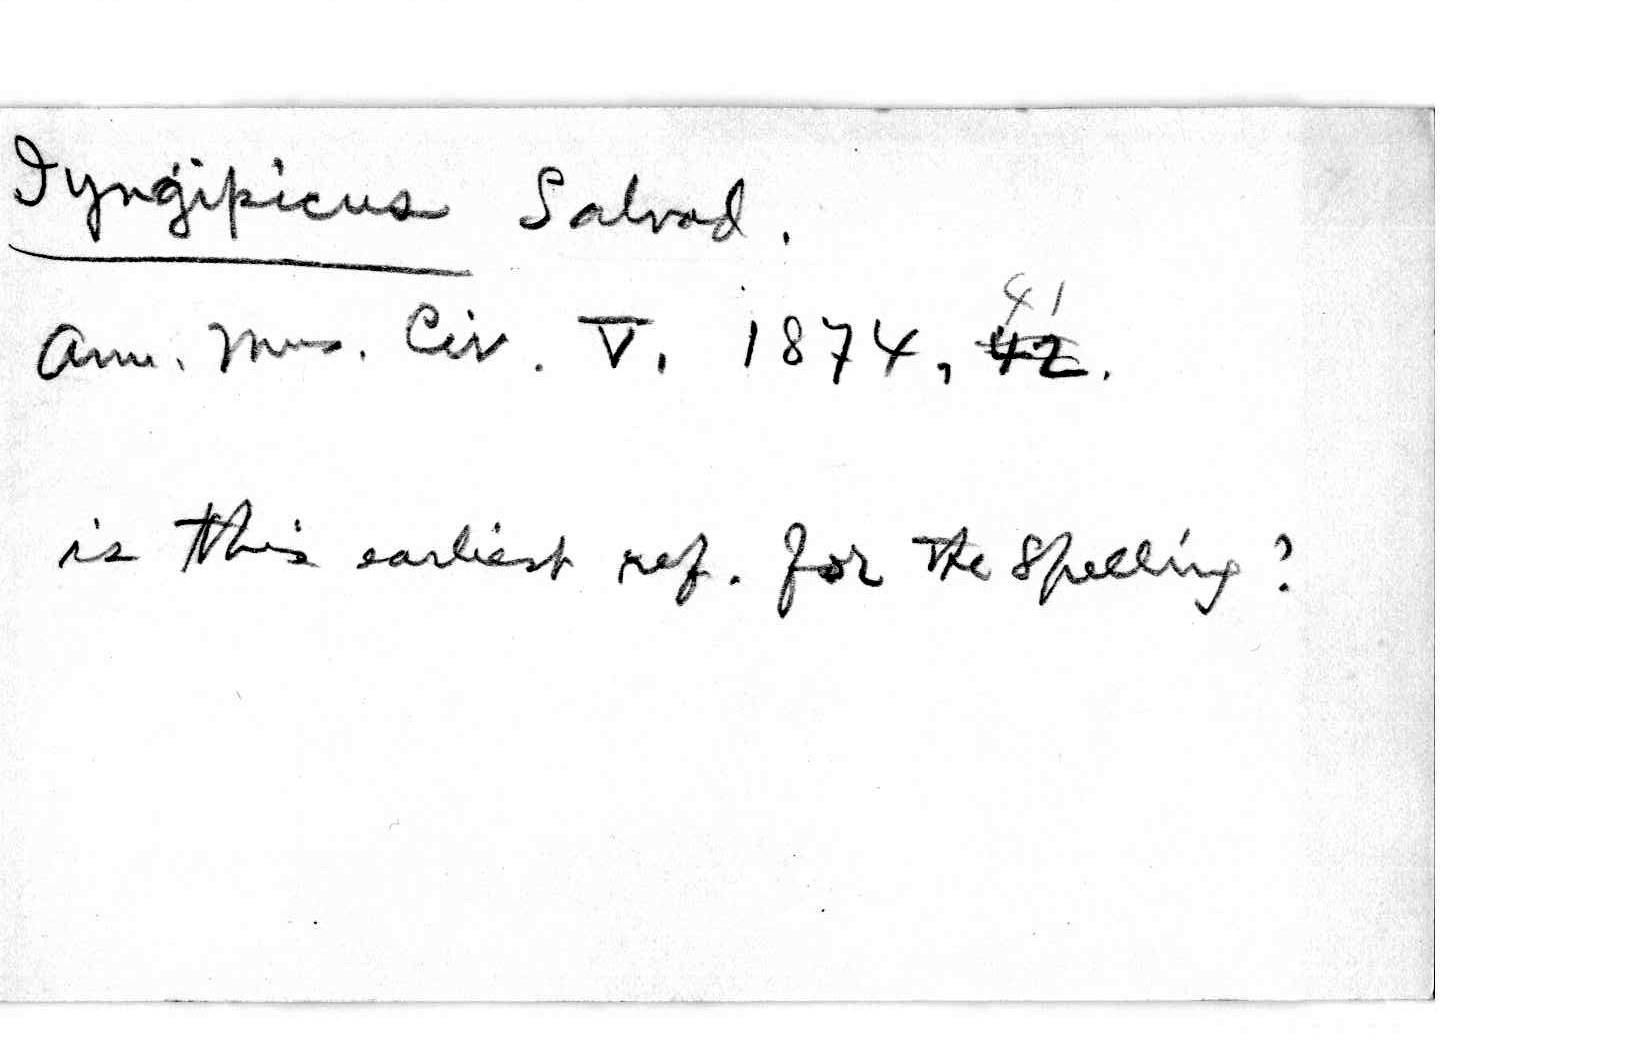 Iyngipicus Salvad.
41
Ann. Mus. Civ. V, 1874, 42.
is this earliest ref. for the spelling?